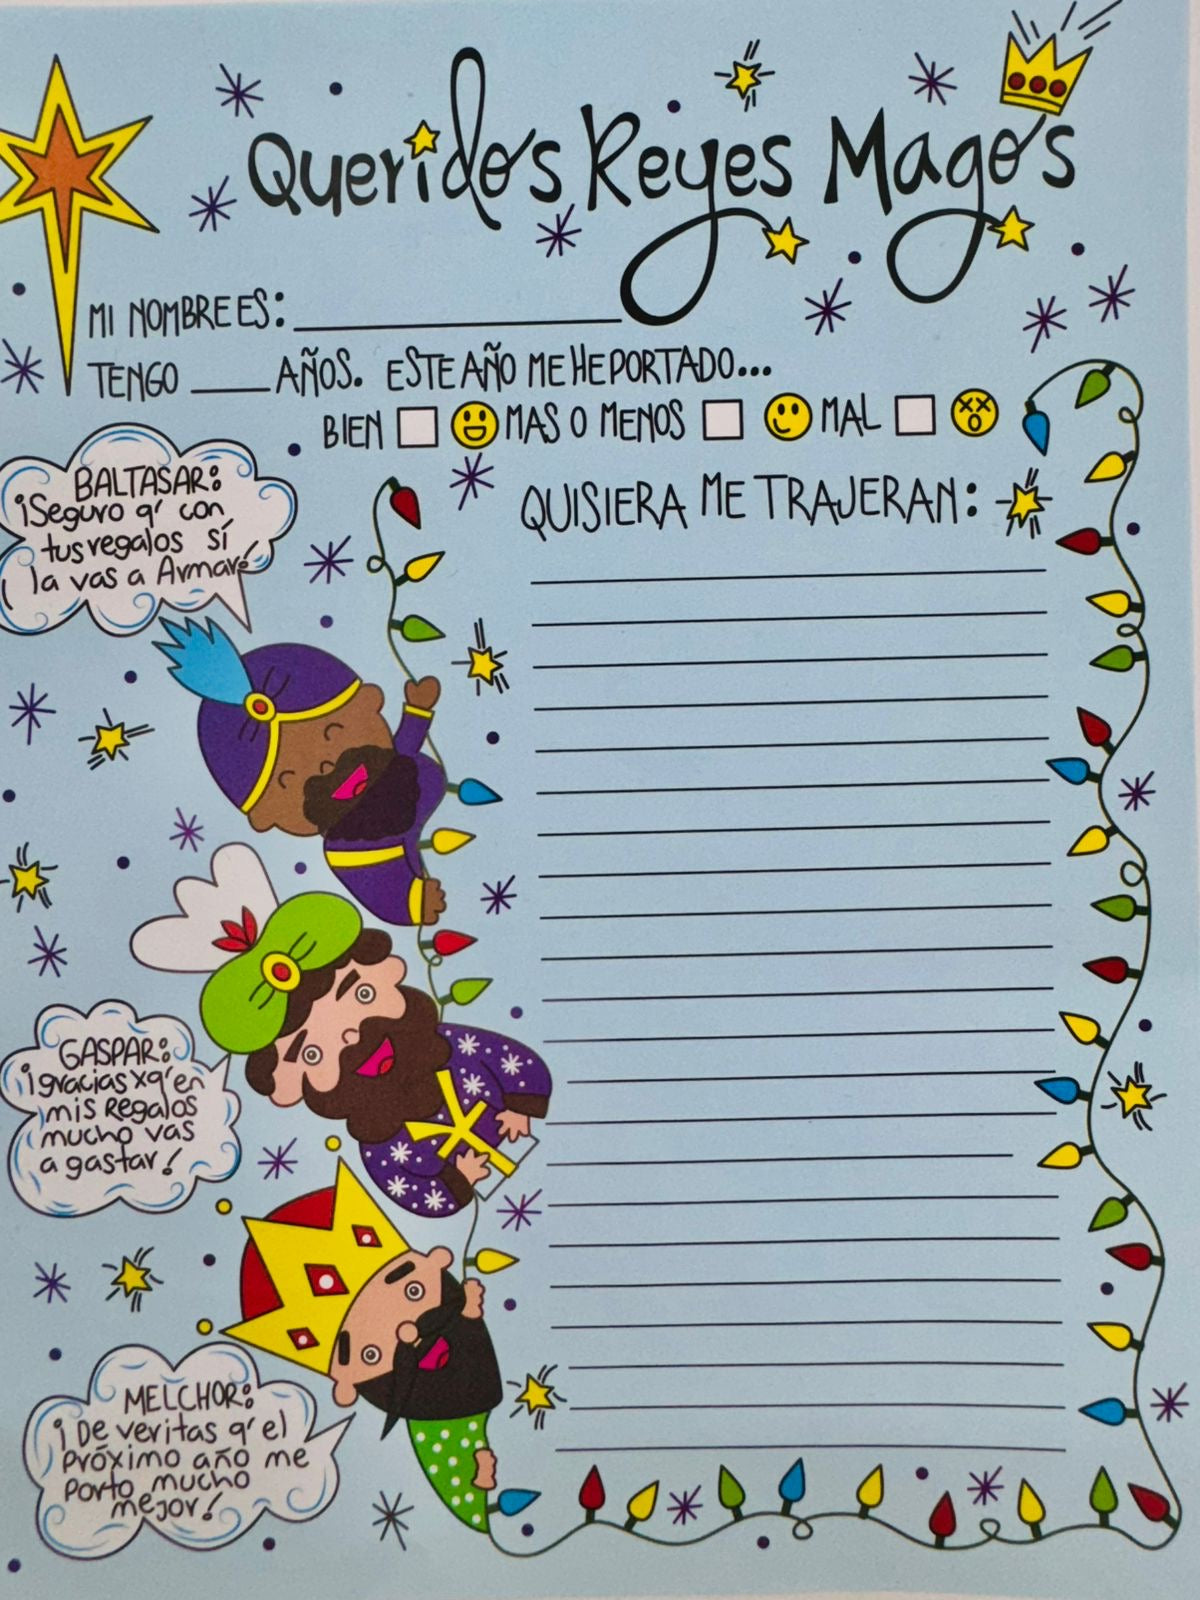 Queridos Reyes Magos
MI NOMBRE ES:
TENGO ____ AÑOS. ESTE AÑO ME HE PORTADO...
BIEN MAS O MENOS MAL
QUISIERA ME TRAJERAN:
BALTASAR:
¡Seguro q' con
tus regalos sí
la vas a Armar!
GASPAR:
¡gracias xq' en
mis Regalos
mucho vas
a gastar!
MELCHOR:
¡De veritas q' el
próximo año me
porto mucho
mejor!